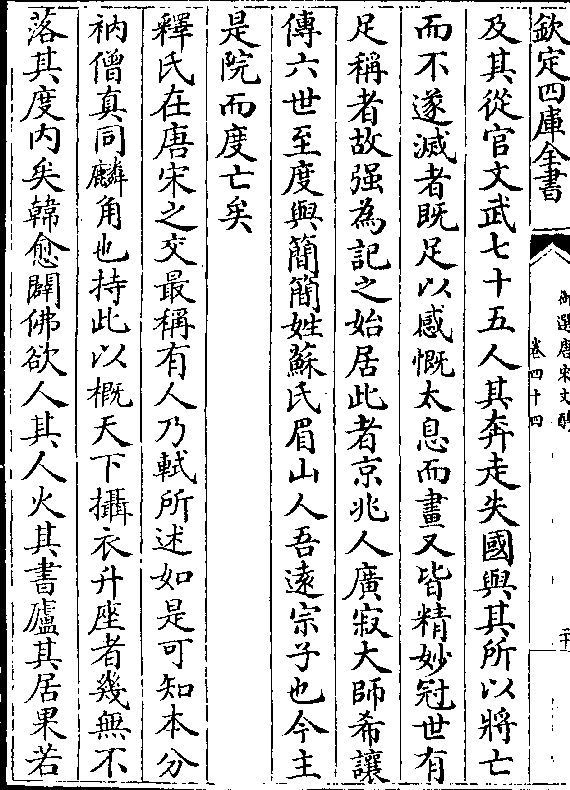 欽定四庫全書
御選唐宋文醇
卷四十四
二十
及其從官文武七十五人其奔走失國與其所以將亡
而不遂滅者既足以感慨太息而畫又皆精妙冠世有
足稱者故强為記之始居此者京兆人廣寂大師希讓
傳六世至度與簡簡姓蘇氏眉山人吾遠宗子也今主
是院而度亡矣
釋氏在唐宋之交最稱有人乃軾所述如是可知本分
衲僧真同麟角也持此以概天下攝衣升座者幾無不
落其度内矣韓愈闢佛欲人其人火其書廬其居果若